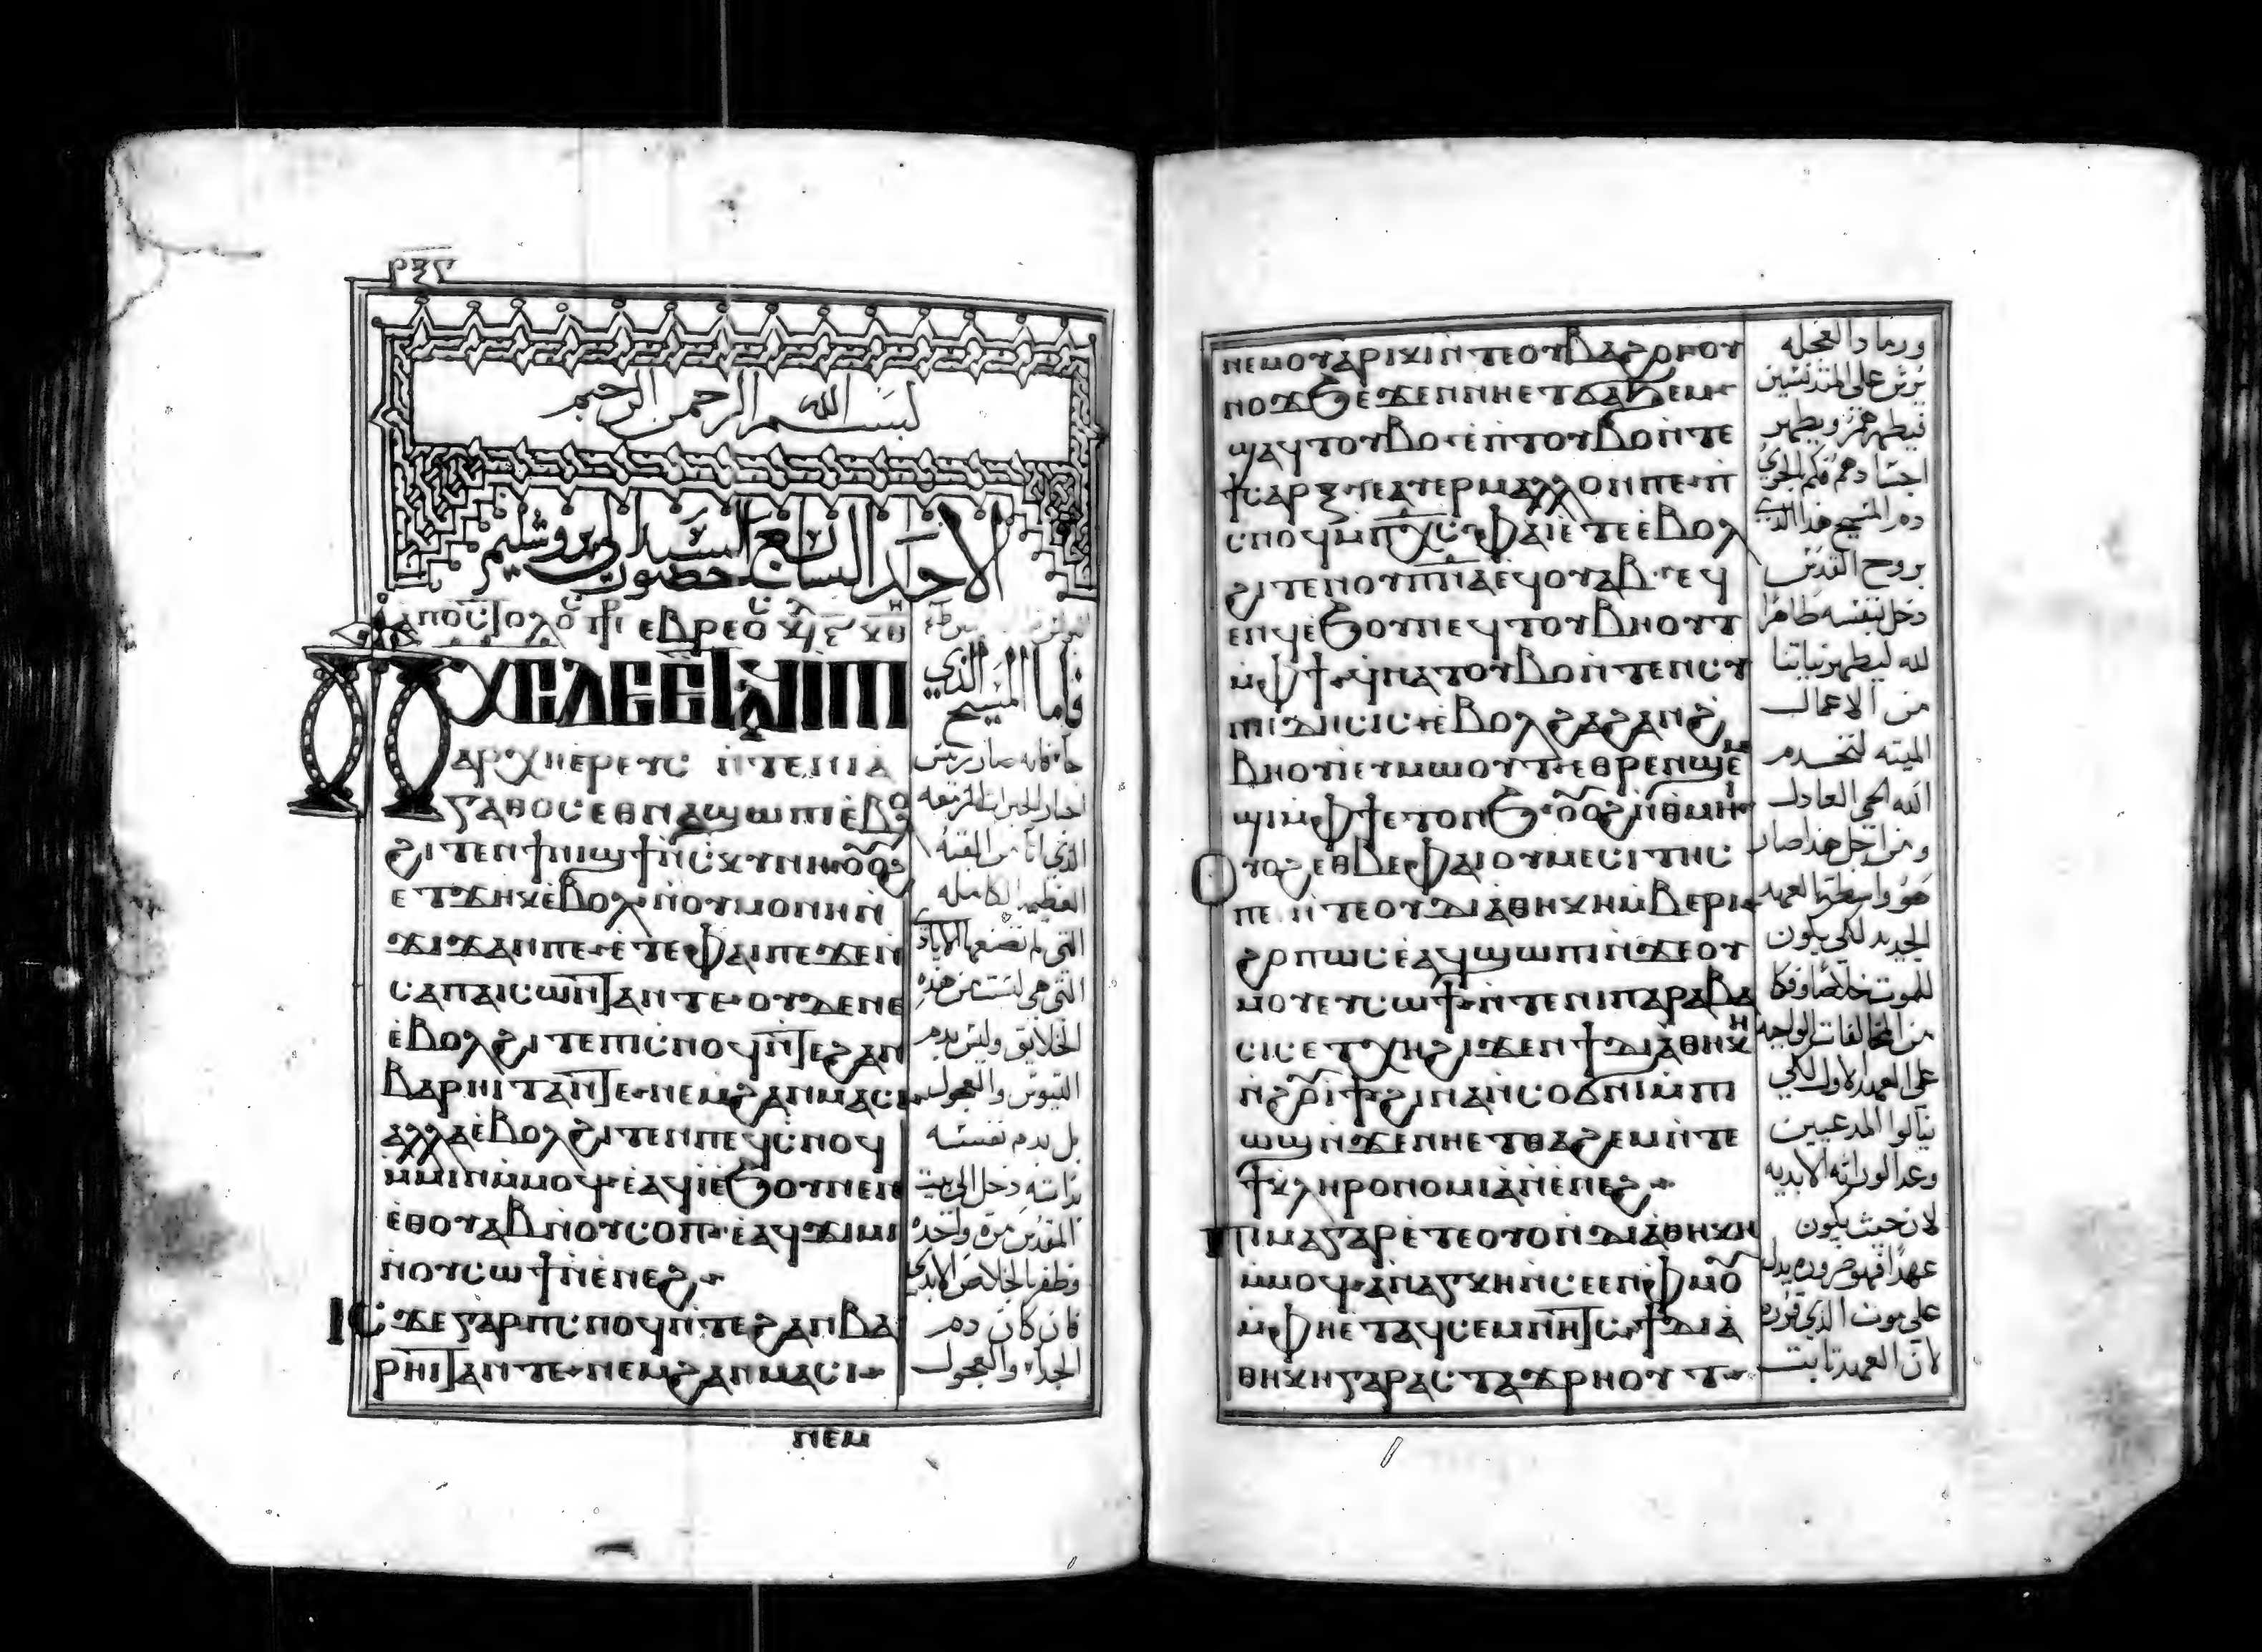 ⲣⲝⲋ
بسم الله الرحمن الرحيم
الاحد الرابع السيد لايروشليم
الشعانين حضور
ⲁⲡⲟⲥⲧⲟⲗⲟⲥ ⲉⲃⲣⲉⲟⲥ
ⲡⲭⲥ ⲇⲉ ⲉⲧⲁϥⲓ ⲡⲓ
ⲁⲣⲭⲏⲉⲣⲉⲩⲥ ⲛⲧⲉⲛⲓⲁ
ⲅⲁⲑⲟⲥ ⲉⲑⲛⲁϣⲱⲡⲓ ⲉⲃⲟ
ϩⲓⲧⲉⲛ ϯⲛⲓϣϯ ⲛⲥⲕⲩⲛⲏ ⲟⲩⲟϩ
ⲉⲧϫⲏⲕ ⲉⲃⲟⲗ ⲛⲟⲩⲙⲟⲛⲕ ⲛ
ϫⲓϫ ⲁⲛ ⲧⲉ ⲉⲧⲉ ⲫⲁⲓ ⲡⲉ ϫⲉ ⲛ
ⲥⲁ ⲡⲁⲓⲥⲱⲛⲧ ⲁⲛ ⲧⲉ ⲟⲩⲇⲉ ⲛⲉ
ⲉⲃⲟⲗ ϩⲓⲧⲉⲛ ⲡⲓⲥⲛⲟϥ ⲛⲧⲉ ϩⲁⲛ
ⲃⲁⲣⲏⲓⲧ ⲁⲛ ⲧⲉ ⲛⲉⲙ ϩⲁⲛⲙⲁⲥⲓ
ⲁⲗⲗⲁ ⲉⲃⲟⲗ ϩⲓⲧⲉⲛ ⲡⲉϥⲥⲛⲟϥ
ⲙⲙⲓⲛ ⲙⲙⲟϥ ⲉⲁϥⲓ ⲉϧⲟⲩⲛ ⲉⲛ
ⲉⲑⲟⲩⲁⲃ ⲛⲟⲩⲥⲟⲡ ⲉⲁϥϫⲓⲙⲓ
ⲛⲟⲩⲥⲱϯ ⲛⲉⲛⲉϩ
ⲓⲥϫⲉ ⲅⲁⲣ ⲡⲥⲛⲟϥ ⲛⲧⲉ ϩⲁⲛⲃⲁ
ⲣⲏⲓⲧ ⲁⲛ ⲧⲉ ⲛⲉⲙ ϩⲁⲛⲙⲁⲥⲓ
فاما المسيح الذي
العظيمه الكامله
التي هي ليست من هذه
الخلائق وليس بدم
التيوس والعجول
بل بدم نفسه
بذاته دخل الى بيت
المقدس مره واحده
وظفر بالخلاص الابدي
فان كان دم
الجداء والعجول
ⲛⲉⲙ
ⲛⲉⲙ ⲟⲩⲕⲉⲣⲙⲓ ⲛⲧⲉ ⲟⲩⲃⲁϩⲥⲓ ⲉⲩ
ⲛⲟϫϧ ⲉϫⲉⲛ ⲛⲏⲉⲧϭⲁϧⲉⲙ
ϣⲁϥⲧⲟⲩⲃⲟ ⲉⲡⲧⲟⲩⲃⲟ ⲛⲧⲉ
ϯⲥⲁⲣⲝ ⲓⲉ ⲁⲧⲉⲣ ⲙⲁⲗⲗⲟⲛ ⲡⲉ ⲡ
ⲥⲛⲟϥ ⲙⲡⲭⲥ ⲫⲁⲓ ⲉⲧⲉ ⲉⲃⲟⲗ
ϩⲓⲧⲉⲛ ⲟⲩⲡⲛⲁ ⲉϥⲟⲩⲁⲃ ⲁϥ
ⲉⲛϥ ⲉϧⲟⲩⲛ ⲉϥⲧⲟⲩⲃⲏⲟⲩⲧ
ⲙⲫϯ ϥⲛⲁⲧⲟⲩⲃⲟ ⲛⲧⲉⲛⲥⲩ
ⲛⲓⲇⲏⲥⲓⲥ ⲉⲃⲟⲗ ϩⲁ ϩⲁⲛϩ
ⲃⲏⲟⲩⲓ ⲉⲩⲙⲱⲟⲩⲧ ⲉⲑⲣⲉⲛϣⲉⲙ
ϣⲓ ⲙⲫϯ ⲉⲧⲟⲛϧ ⲟⲩⲟϩ ⲛⲑⲙⲏⲓ
ⲟⲩⲟϩ ⲉⲑⲃⲉ ⲫⲁⲓ ⲟⲩⲙⲉⲥⲓⲧⲏⲥ
ⲡⲉ ⲛⲧⲉ ⲟⲩⲇⲓⲁⲑⲏⲕⲏ ⲙⲃⲉⲣⲓ
ϩⲟⲡⲱⲥ ⲉⲁϥϣⲱⲡⲓ ⲛϫⲉ ⲟⲩ
ⲙⲟⲩ ⲉⲩⲥⲱϯ ⲛⲧⲉ ⲛⲓⲡⲁⲣⲁⲃⲁ
ⲥⲓⲥ ⲉⲧⲭⲏ ϩⲓϫⲉⲛ ϯⲇⲓⲁⲑⲏⲕⲏ
ⲛϩⲟⲩⲓϯ ϩⲓⲛⲁ ⲛⲥⲉϭⲓ ⲙⲡⲓ
ⲱϣ ⲛϫⲉ ⲛⲏⲉⲧⲑⲁϩⲉⲙ ⲛⲧⲉ
ϯⲕⲗⲏⲣⲟⲛⲟⲙⲓⲁ ⲛⲉⲛⲉϩ
ⲡⲓⲙⲁ ⲅⲁⲣ ⲉⲧⲉ ⲟⲩⲟⲛ ⲇⲓⲁⲑⲏⲕⲏ
ⲙⲙⲟϥ ⲁⲛⲁⲅⲕⲏ ⲛⲥⲉⲉⲛ ⲫⲙⲟⲩ
ⲙⲫⲏⲉⲧⲁϥⲥⲉⲙⲛⲏⲧⲥ ϯⲇⲓⲁ
ⲑⲏⲕⲏ ⲅⲁⲣ ⲁⲥⲧⲁϫⲣⲏⲟⲩⲧ
ورماد العجله
يرش على المتدنسين
فيطهرهم ويطهر
اجسادهم فكم بالحري
دم المسيح هذا الذي
بروح القدس
دخل بنفسه طاهرا
لله ليطهر نياتنا
من الاعمال
الميته لنخدم
الله الحي العادل
ومن اجل هذا صار
هو واسطة العهد
الجديد لكي يكون
للموت خلاصا وفكا
من المخالفات الواجبه
على العهد الاول لكي
ينالوا المدعيين
وعد الوراثه الابديه
لان حيث يكون
عهدا فهو ضروره يدل
على موت الذي قرره
لان العهد ثابت